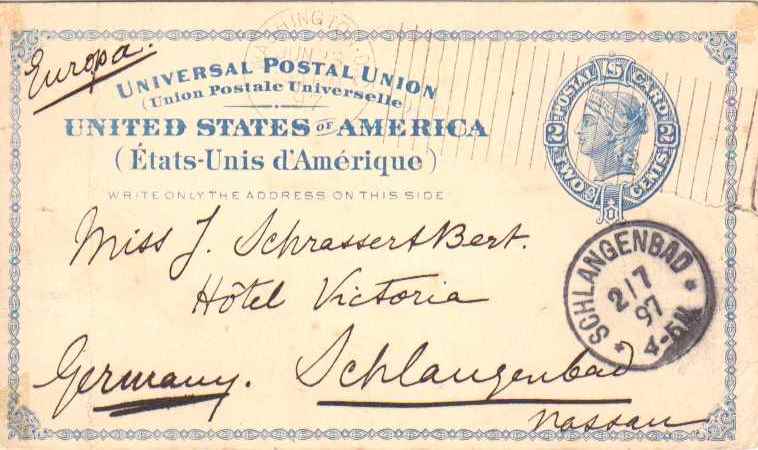 Europa.
WASHINGTON
JUN
UNIVERSAL POSTAL UNION
(Union Postale Universelle)
UNITED STATES OF AMERICA
(États-Unis d'Amérique)
WRITE ONLY THE ADDRESS ON THIS SIDE
POSTAL U S CARD
2 2
TWO CENTS
Miss J. Schrassert Bert.
Hôtel Victoria
Germany. Schlangenbad
Nassau
SCHLANGENBAD
2/7
97
4-5N